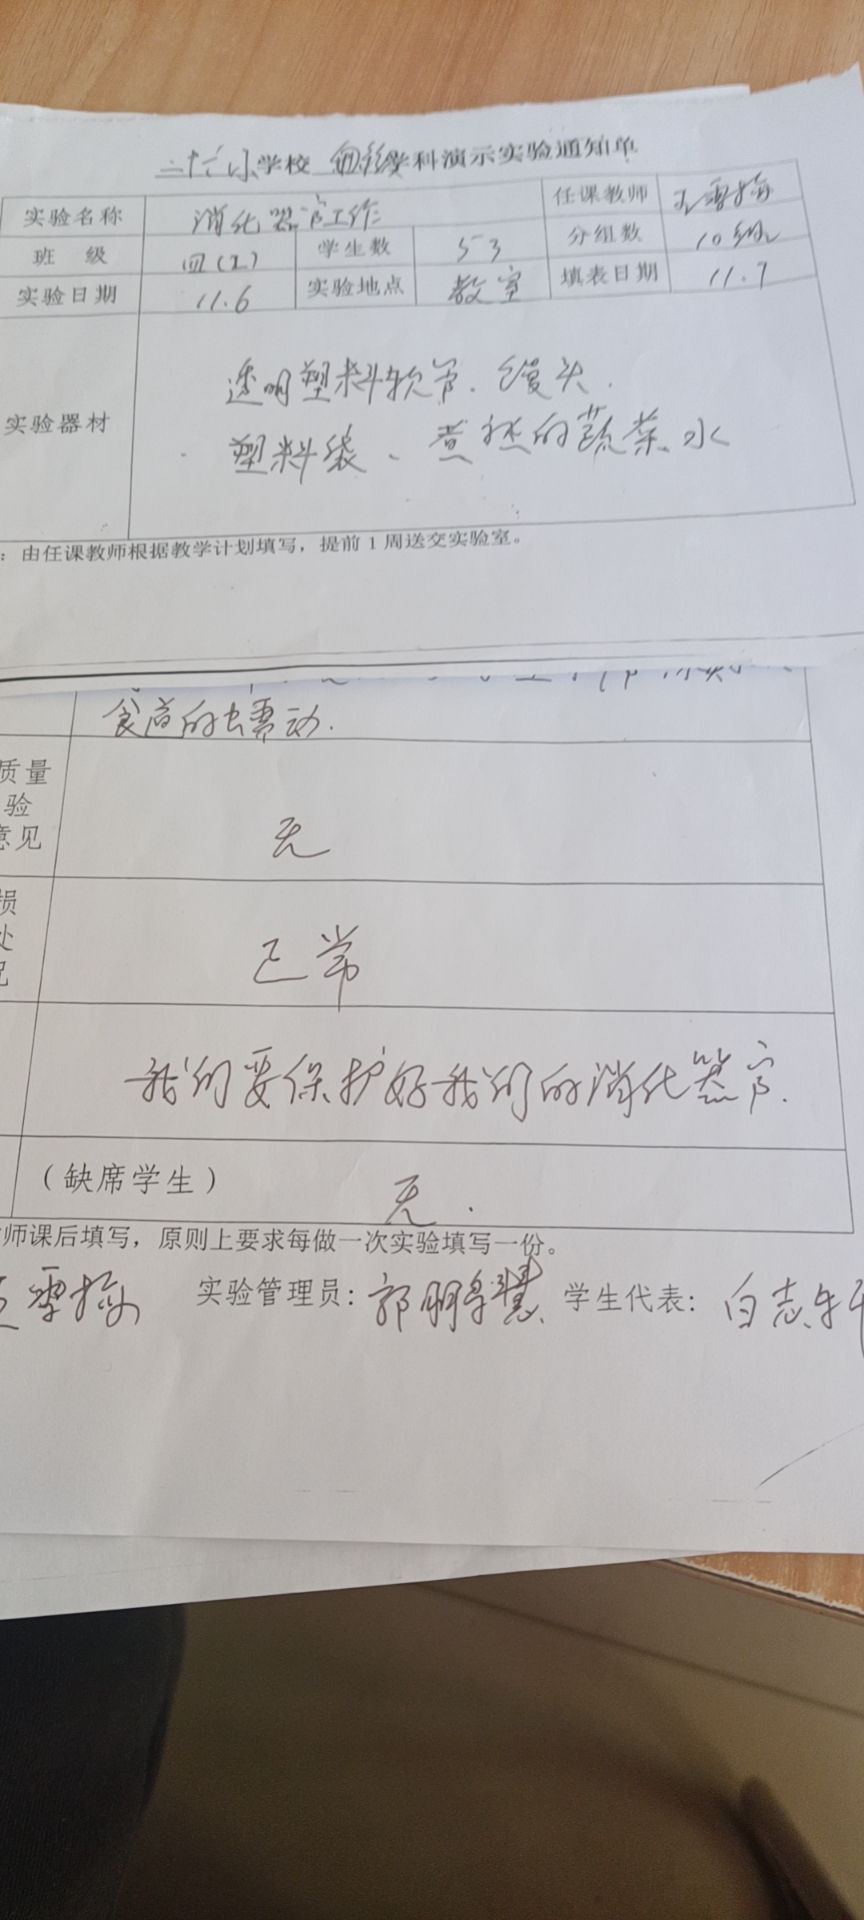 二十六小学校 科学科演示实验通知单
实验名称 消化器官工作 任课教师 雪梅
班 级 四(2) 学生数 53 分组数 10组
实验日期 11.6 实验地点 教室 填表日期 11.7
实验器材 透明塑料软管、馒头、
塑料袋、煮熟的蔬菜、水
：由任课教师根据教学计划填写，提前1周送交实验室。
食道的蠕动.
质量
验
意见 无
损
处
况 正常
我们要保护好我们的消化器官.
（缺席学生） 无.
师课后填写，原则上要求每做一次实验填写一份。
雪梅 实验管理员：郭 慧 学生代表：白志